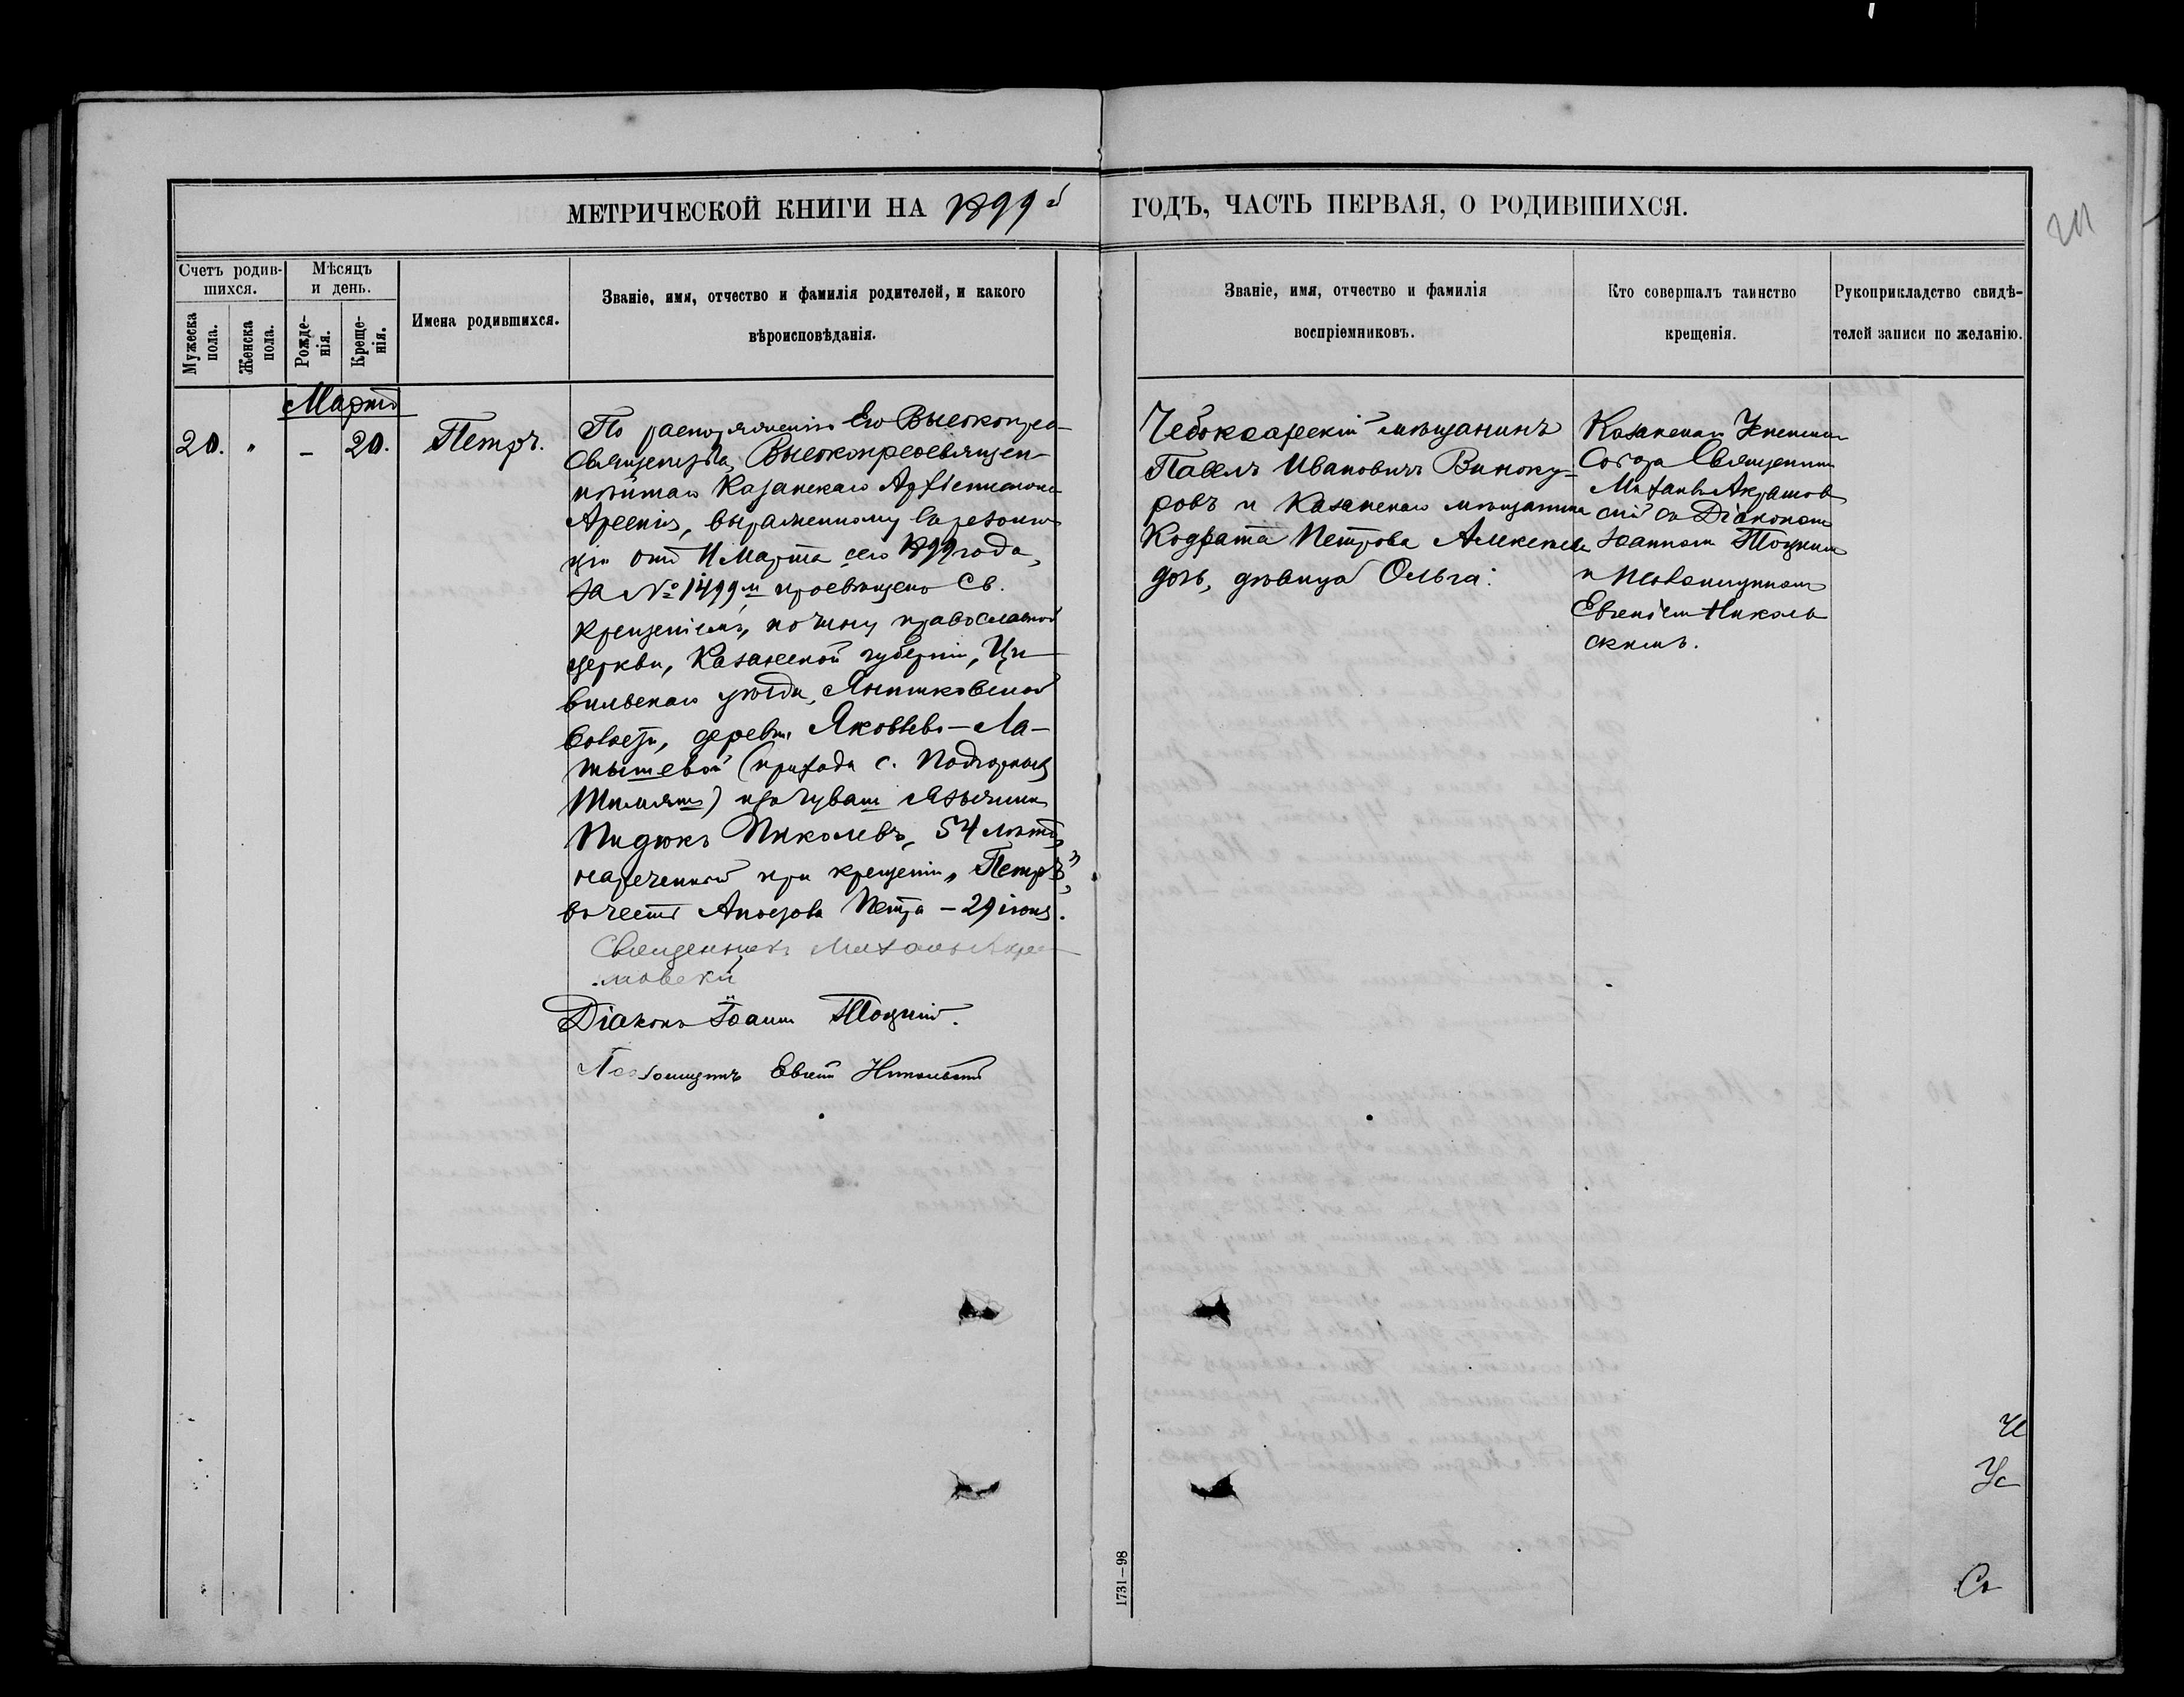 МЕТРИЧЕСКОЙ КНИГИ НА 1899й
ГОДЪ, ЧАСТЬ ПЕРВАЯ, О РОДИВШИХСЯ.
Счетъ родив-
шихся.
Мѣсяцъ
и день.
Мужеска
пола.
Женска
пола.
Рожде-
нія.
Креще-
нія.
Имена родившихся.
Званіе, имя, отчество и фамилія родителей, и какого
вѣроисповѣданія.
Званіе, имя, отчество и фамилія
воспріемниковъ.
Кто совершалъ таинство
крещенія.
Рукоприкладство свидѣ-
телей записи по желанію.
Мартъ
20. " – 20. Петръ.
По распоряженію Его Высокопрео-
священства, Высокопреосвящен-
нѣйшаго Казанскаго Архіепископа
Арсенія, выраженному въ резолю-
ціи отъ 11 Марта сего 1899 года,
за № 1499м просвѣщенъ Св.
Крещеніемъ, по чину православной
церкви, Казанской губерніи, Ци-
вильскаго уѣзда, Янтиковской
волости, деревни Яковлево-Ла-
тышевой (прихода с. Подгорныхъ
Тимяшъ) изъ чувашъ язычникъ
Пидюкъ Николевъ, 54 лѣтъ,
нареченный при крещеніи „Петръ",
въ честь Апостола Петра – 29 іюня.
Священникъ Михаилъ Акра-
мовскій
Діаконъ Іоаннъ Троцкій.
Псаломщикъ Евгеній Никольскій
Чебоксарскій мѣщанинъ
Павелъ Ивановичъ Виноку-
ровъ и Казанскаго мѣщанина
Кодрата Петрова
дочь, дѣвица Ольга.
Казанскаго
Собора Священникъ
Михаилъ Акрамов
скій съ Діакономъ
Іоанномъ Троцкимъ
и Псаломщикомъ
Евгеніемъ Николь
скимъ.
1731—98